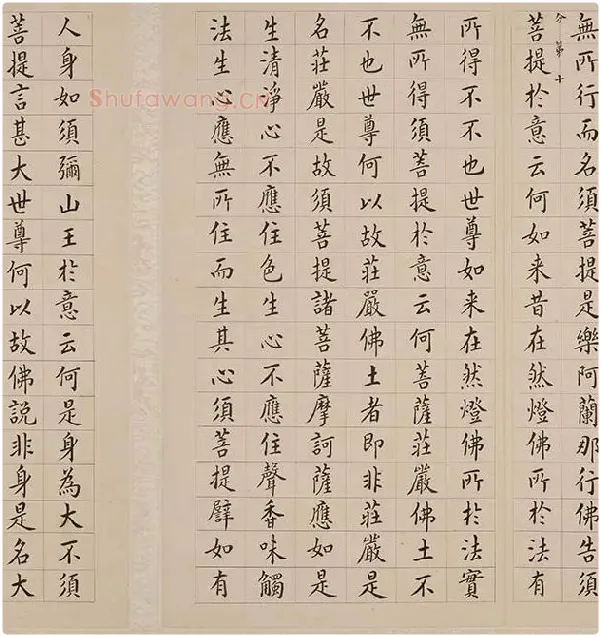 無所行而名須菩提是樂阿蘭那行佛告須
分第十
菩提於意云何如来昔在然燈佛所於法有
所得不不也世尊如来在然燈佛所於法實
無所得須菩提於意云何菩薩莊嚴佛土不
不也世尊何以故莊嚴佛土者即非莊嚴是
名莊嚴是故須菩提諸菩薩摩訶薩應如是
生清淨心不應住色生心不應住聲香味觸
法生心應無所住而生其心須菩提譬如有
人身如須彌山王於意云何是身為大不須
菩提言甚大世尊何以故佛説非身是名大
Shufawang.CN